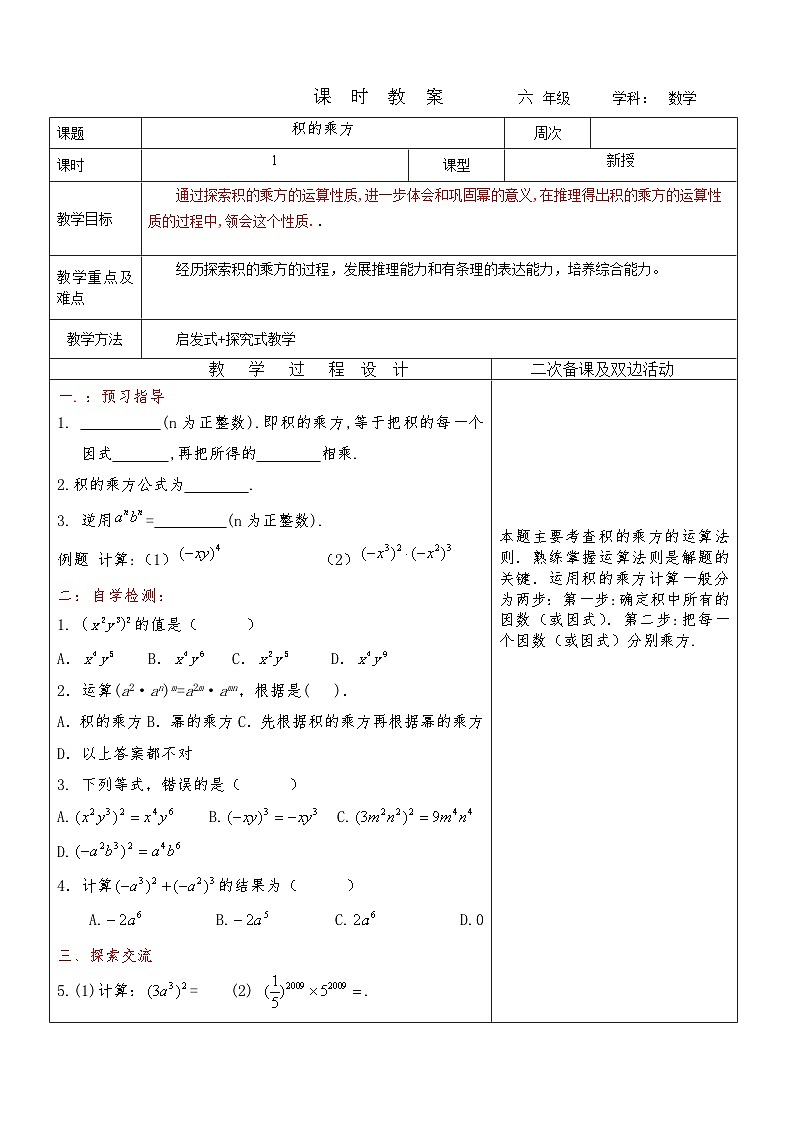 课 时 教 案 六 年级 学科： 数学
课题 积的乘方 周次
课时 1 课型 新授
教学目标 通过探索积的乘方的运算性质,进一步体会和巩固幂的意义,在推理得出积的乘方的运算性
质的过程中,领会这个性质. .
教学重点及难点 经历探索积的乘方的过程，发展推理能力和有条理的表达能力，培养综合能力。
教学方法 启发式+探究式教学
教 学 过 程 设 计 二次备课及双边活动
一.：预习指导
1. __________(n 为正整数).即积的乘方,等于把积的每一个
因式_______,再把所得的________相乘.
2.积的乘方公式为________.
3. 逆用aⁿbⁿ=_________(n 为正整数).
例题 计算:（1）(−xy)⁴ （2）(−x³)²·(−x²)³
二：自学检测：
1. (x²y³)²的值是（ ）
A. x⁴y⁵ B. x⁴y⁶ C. x²y⁵ D. x⁴y⁹
2. 运算(a²·aⁿ)ᵐ=a²ᵐ·aᵐⁿ，根据是( ).
A．积的乘方 B．幂的乘方 C．先根据积的乘方再根据幂的乘方
D．以上答案都不对
3. 下列等式，错误的是（ ）
A.(x²y³)²=x⁴y⁶ B.(−xy)³=−xy³ C.(3m²n²)²=9m⁴n⁴
D.(−a²b³)²=a⁴b⁶
4. 计算(−a³)²+(−a²)³的结果为（ ）
A.−2a⁶ B.−2a⁵ C.2a⁶ D.0
三、探索交流
5.(1)计算：(3a³)²= (2) (1/5)²⁰⁰⁹×5²⁰⁰⁹=.
本题主要考查积的乘方的运算法
则．熟练掌握运算法则是解题的
关键．运用积的乘方计算一般分
为两步：第一步:确定积中所有的
因数（或因式）．第二步:把每一
个因数（或因式）分别乘方.